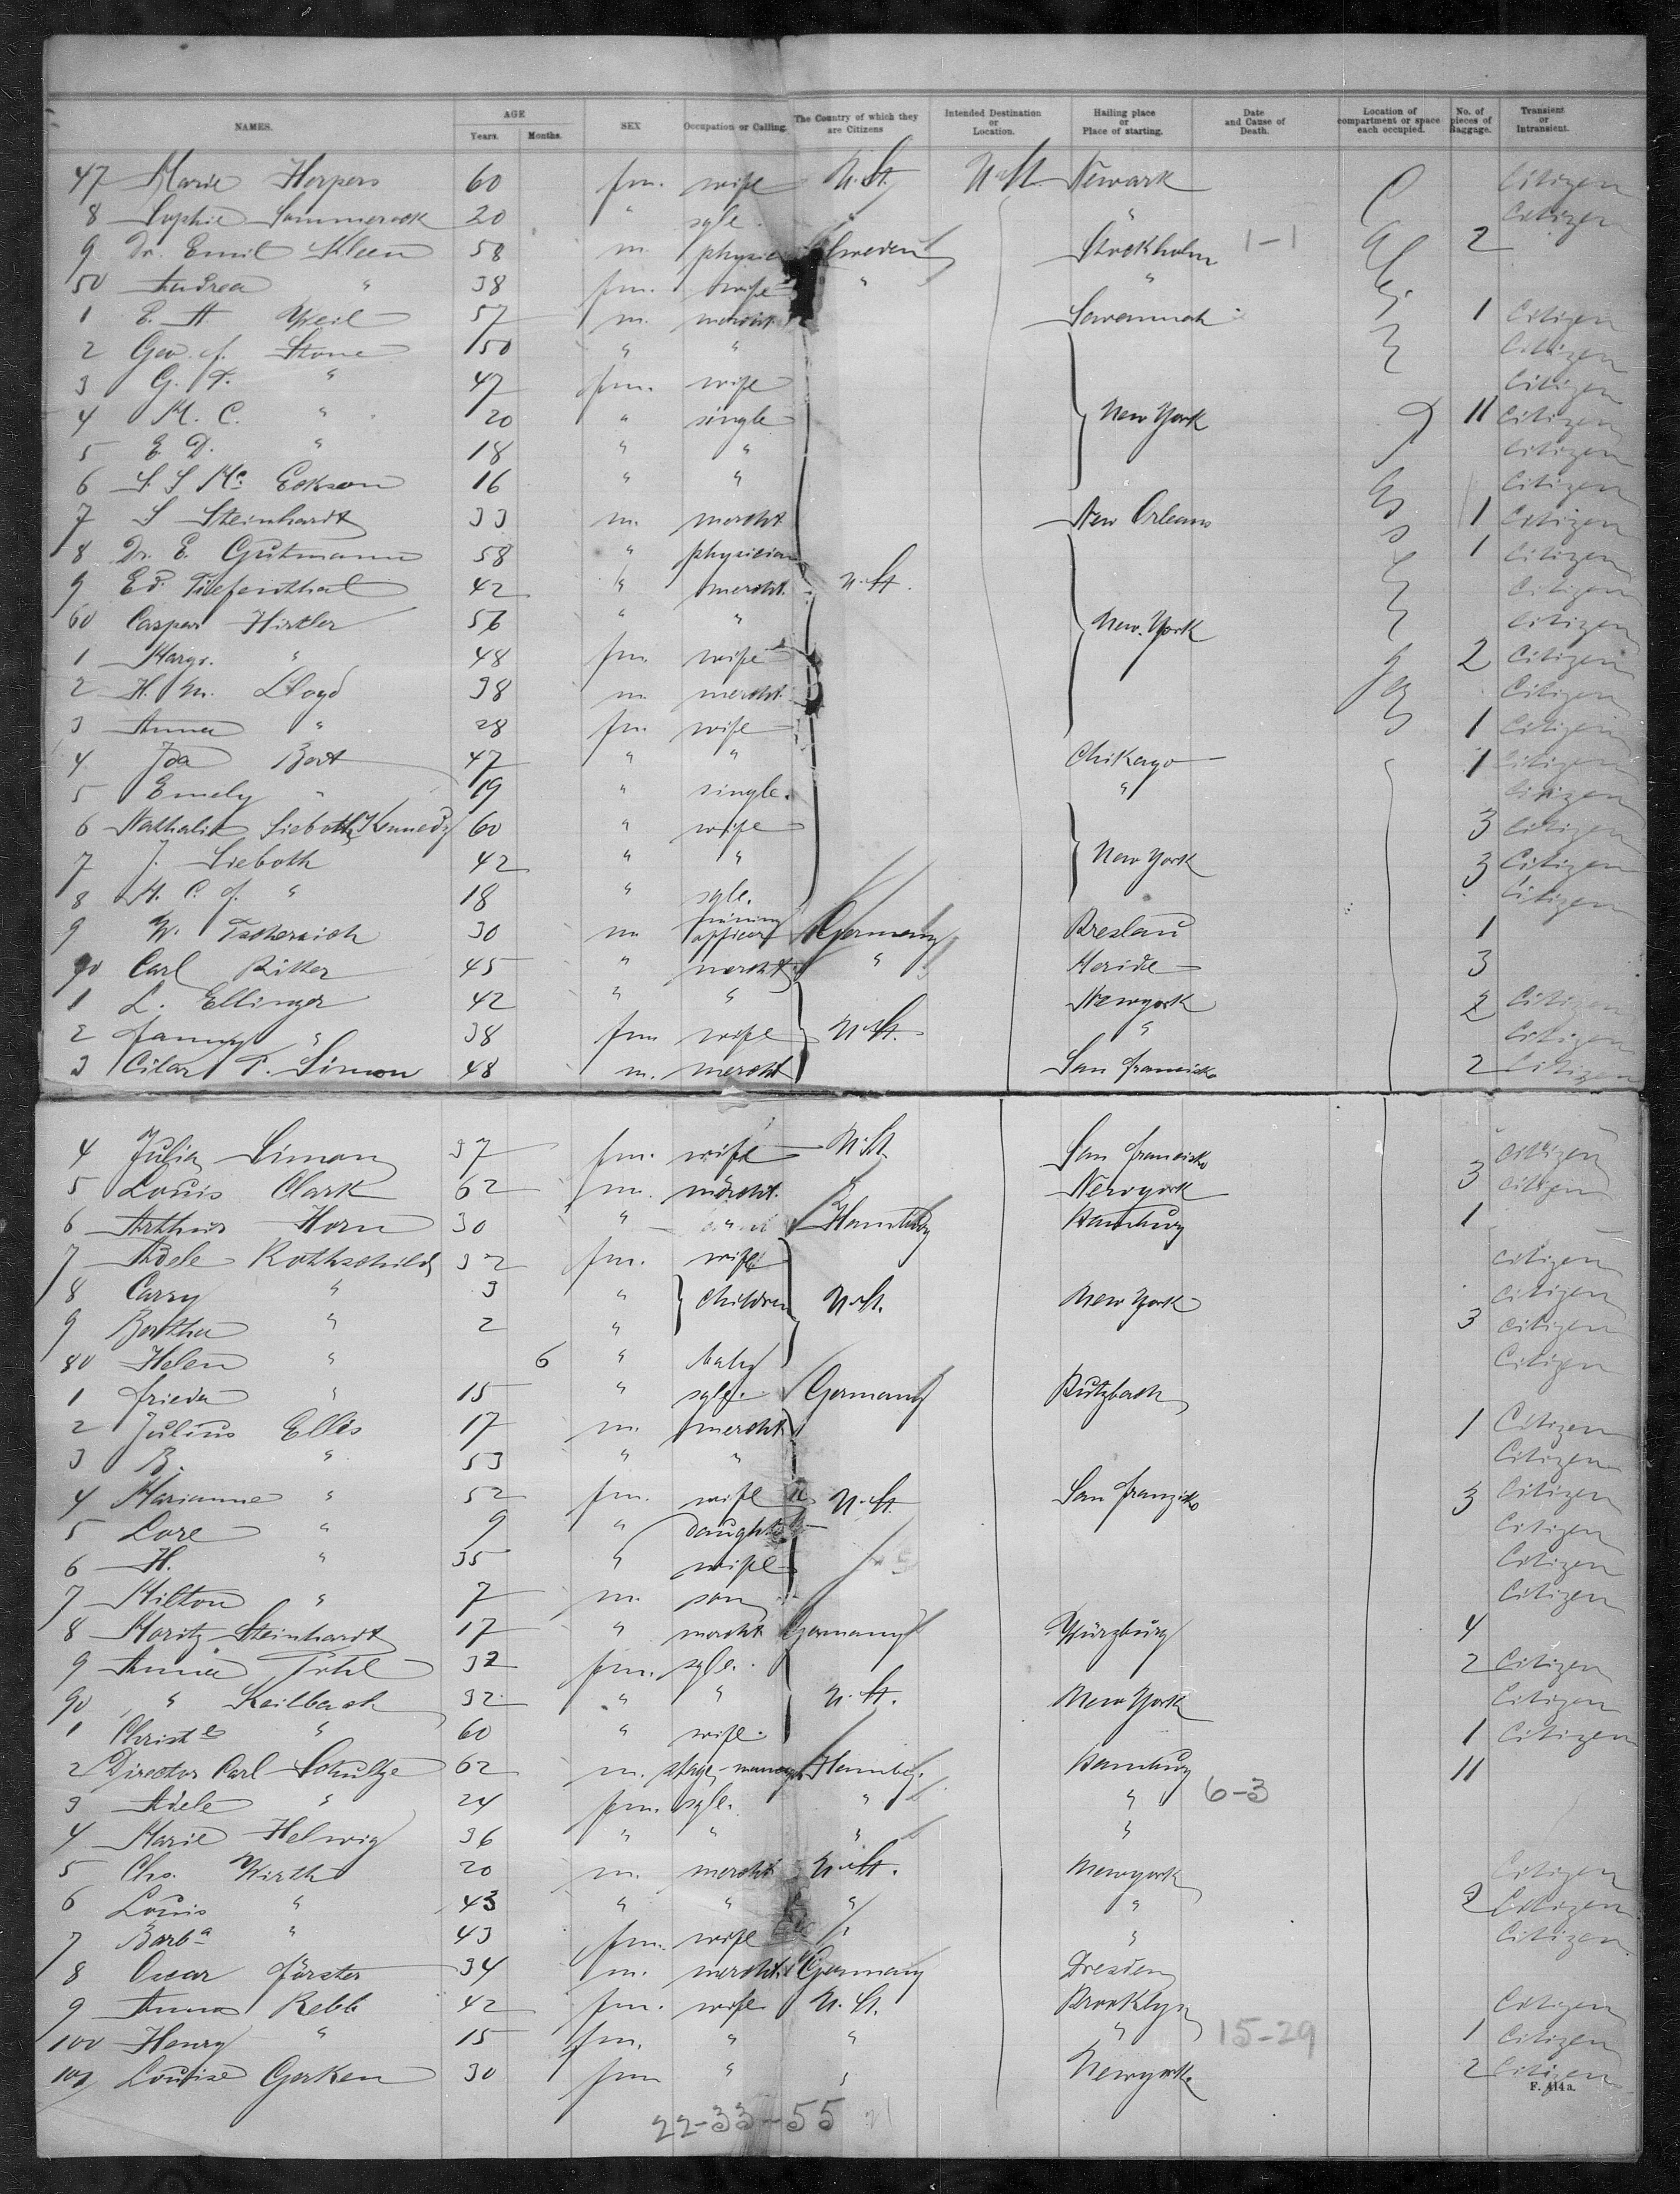 NAMES. AGE Years. Months. SEX Occupation or Calling. The Country of which they are Citizens Intended Destination or Location. Hailing place or Place of starting. Date and Cause of Death. Location of compartment or space each occupied. No. of pieces of Baggage. Transient or Intransient.
47 Marie Herpers 60 fm. wife U.St. U.St. Newark Citizen
8 Sophie Sommerock 20 " sgle. " " Citizen
9 Dr. Emil Kleen 58 m. physic Sweden Stockholm 1-1 2
50 Andrea " 38 fm. wife " "
1 E. A Weil 57 m. mercht. Savannah 1 Citizen
2 Geo. J. Stone 50 " " Citizen
3 G. T. " 47 fm. wife Citizen
4 M. C. " 20 " single New York 11 Citizen
5 E. D. " 18 " " Citizen
6 S. S Mc Eckson 16 " " Citizen
7 S Steinhardt 33 m. mercht New Orleans 1 Citizen
8 Dr. E. Gutmann 58 " physician 1 Citizen
9 Ed. Tiefenthal 42 " mercht. U.St. Citizen
60 Caspar Hirtler 56 " " New York Citizen
1 Margr. " 48 fm. wife 2 Citizen
2 H. M. Lloyd 38 m. mercht. Citizen
3 Anna " 28 fm. wife 1 Citizen
4 Ida Bert 47 " " Chikago 1 Citizen
5 Emely " 19 " single. " Citizen
6 Nathalie Sieboth Kennedy 60 " wife 3 Citizen
7 J. Sieboth 42 " " New York 3 Citizen
8 H. C. J. " 18 " sgle. Citizen
9 W. Tschersich 30 m mining officer Germany Breslau 1
70 Carl Ritter 45 " mercht " Meride 3
1 L. Ellinger 42 " " Newyork 2 Citizen
2 Fanny " 38 fm wife U.St. " Citizen
3 T. Simon 48 m. mercht San Francisko 2 Citizen
4 Julia Simon 37 fm. wife U.St San Francisko Citizen
5 Louis Clark 62 fm. mercht. Newyork 3 Citizen
6 Arthur Horn 30 " " Hamburg Hamburg 1
7 Adele Rothschild 32 fm. wife Citizen
8 Carry " 3 " children U.St. New York Citizen
9 Bertha " 2 " 3 Citizen
80 Helen " 6 " baby Citizen
1 Frieda " 15 " sgle. Germany Butzbach
2 Julius Ellis 17 m. mercht 1 Citizen
3 B. " 53 " " Citizen
4 Marianne " 52 fm. wife U.St. San Franzisko 3 Citizen
5 Lore " 9 " daught. Citizen
6 H. " 35 " wife Citizen
7 Milton " 7 m. son Citizen
8 Moritz Steinhardt 17 " mercht Germany Würzburg 4
9 Anna Pohl 32 fm. sgle. 2 Citizen
90 " Keilbach 32 " " U.St. New York Citizen
1 Christe " 60 " wife. 1 Citizen
2 Director Carl Schultze 62 m. stage-manag. Hambg. Hamburg 11
3 Adele " 24 fm. sgle. " " 6-3
4 Marie Helwig 36 " " " "
5 Chs. Wirth 20 m. mercht U.St. Newyork Citizen
6 Louis " 43 " " " " 2 Citizen
7 Barba " 43 fm. wife " " Citizen
8 Oscar Förster 34 m. mercht. Germany Dresden
9 Anna Rebb 42 fm. wife U.St. Brooklyn Citizen
100 Henry " 15 fm. " " " 15-29 1 Citizen
101 Louise Gerken 30 fm " " Newyork 2 Citizen
F. 414a.
22-33-55